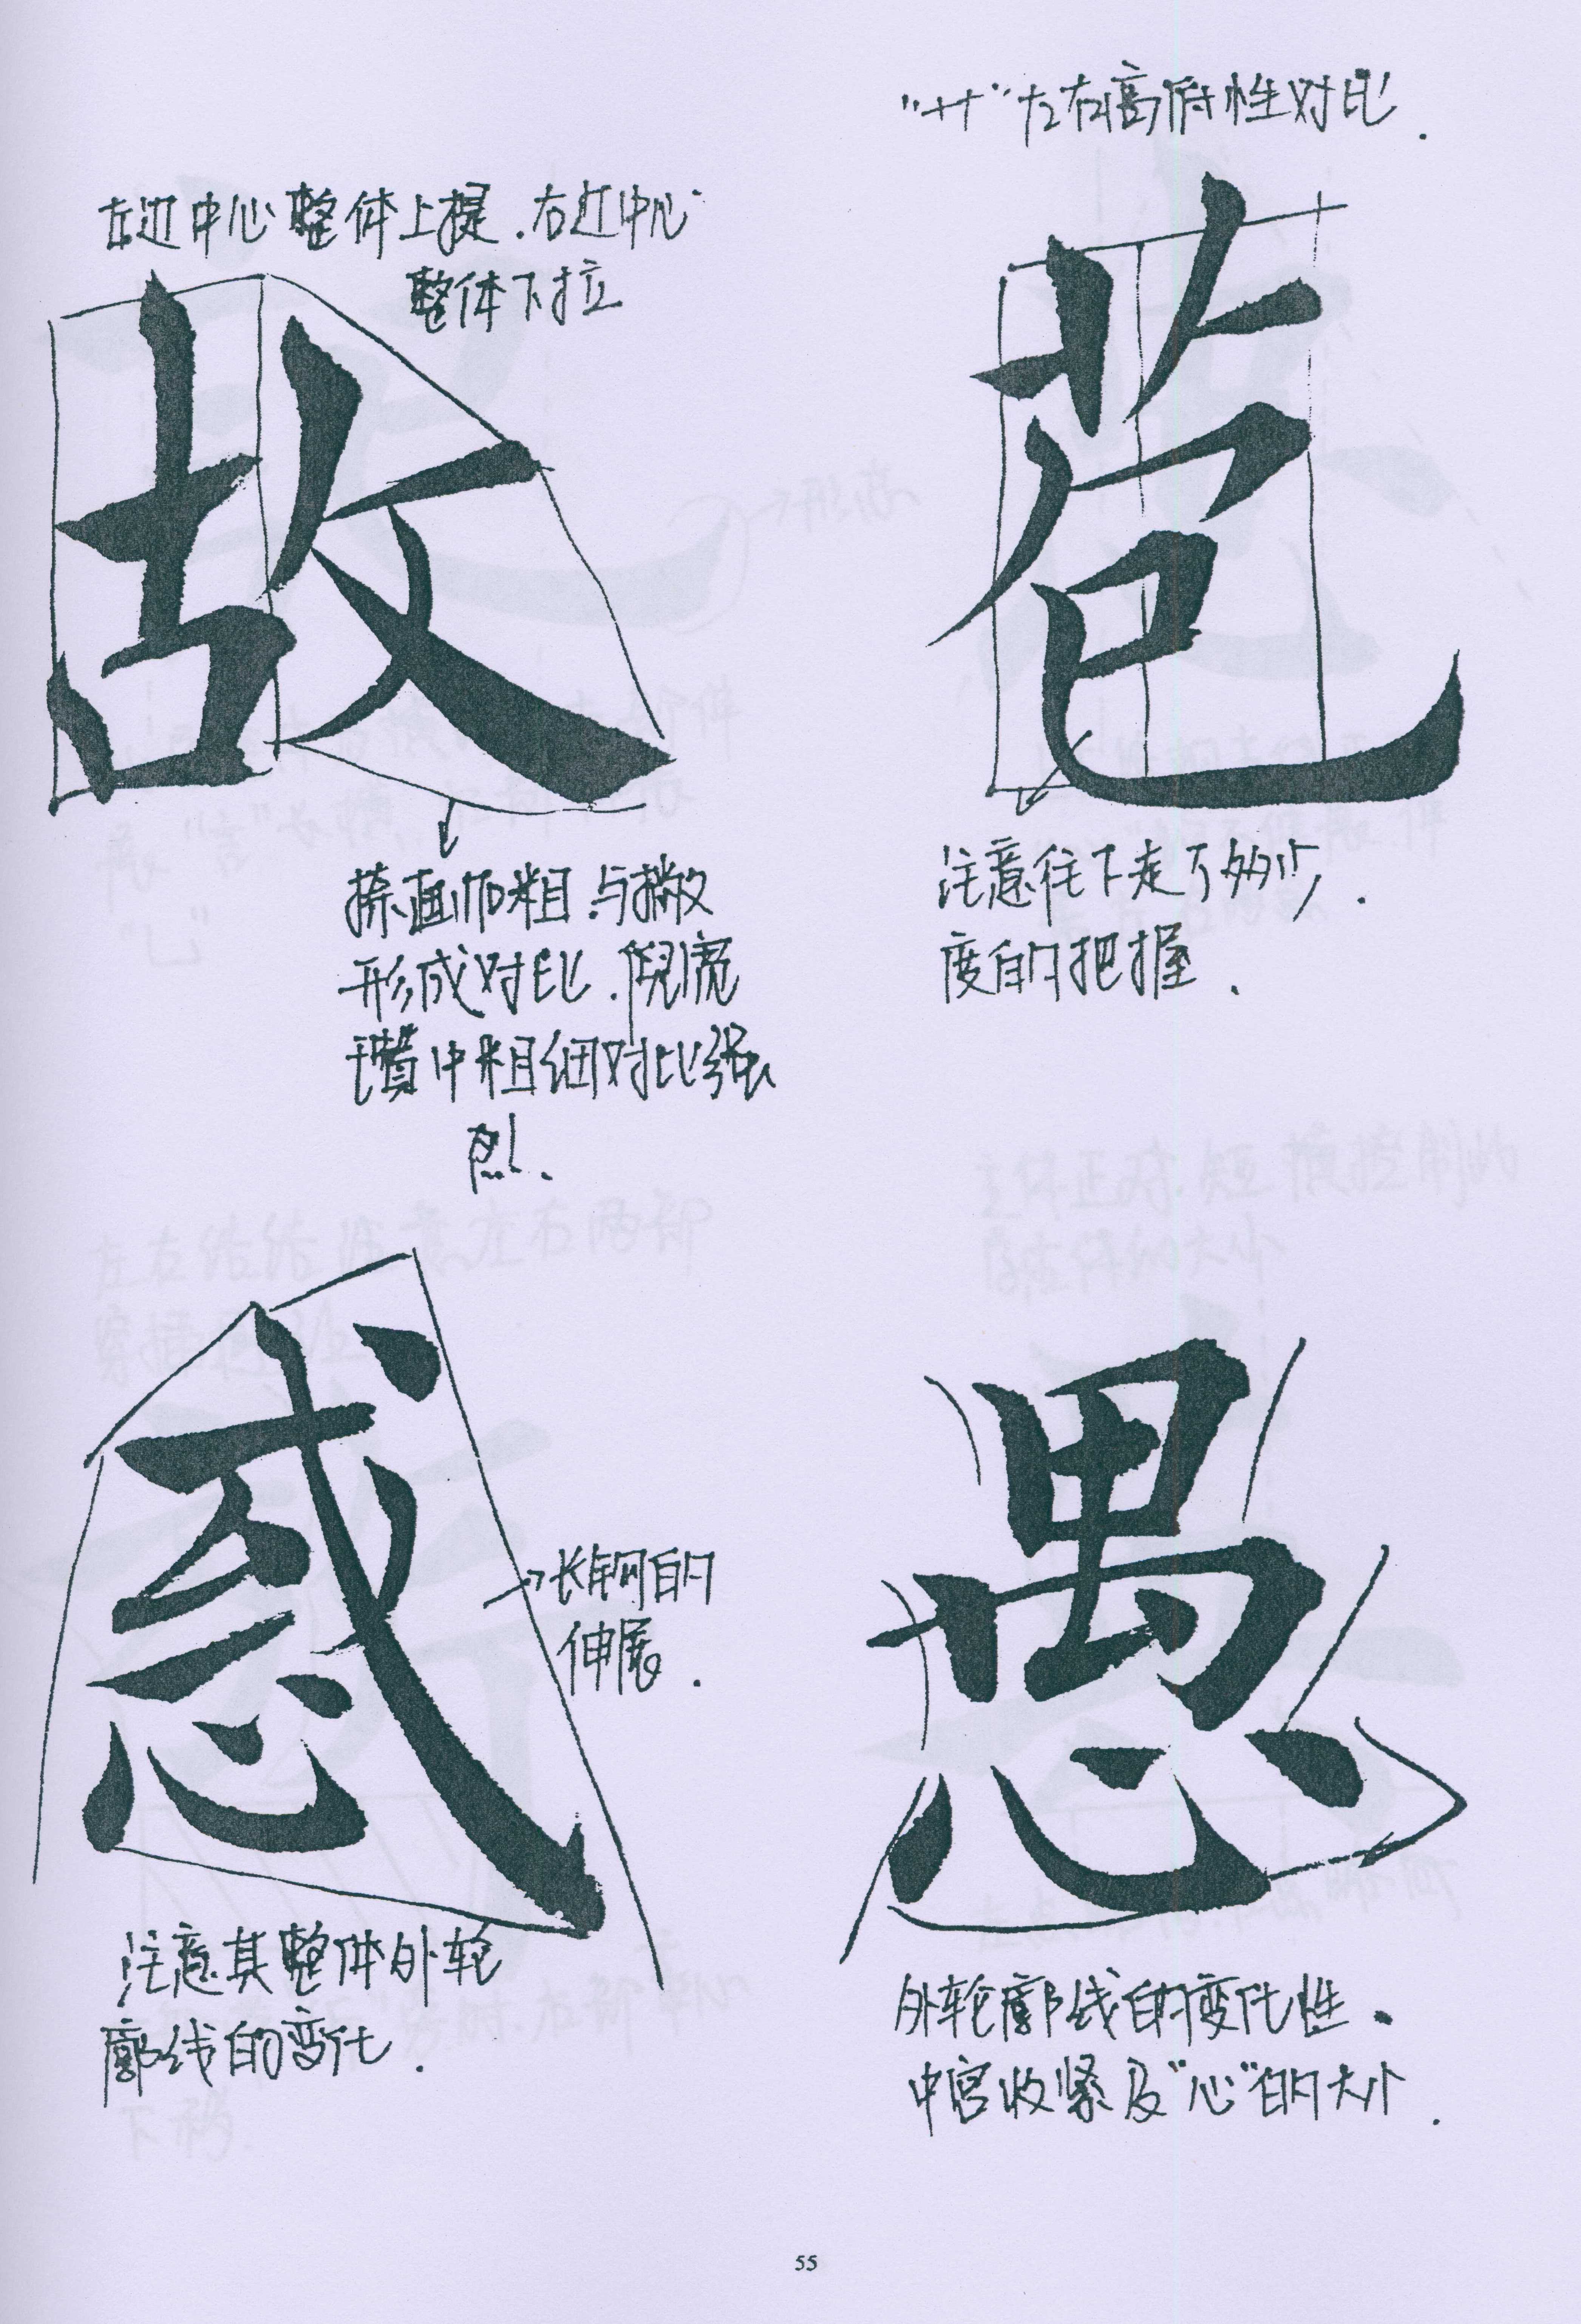 左边中心整体上提.右边中心
整体下拉
故
捺画加粗.与撇
形成对比.倪宽
赞中粗细对比强
烈.
"艹"左右高低性对比.
苞
注意往下走了多少,
度的把握.
惑
长钩的
伸展.
注意其整体外轮
廓线的变化.
愚
外轮廓线的变化性.
中宫收紧及"心"的大小.
55